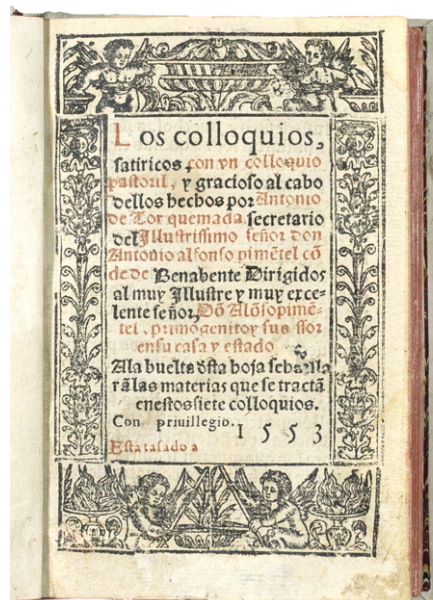 Los colloquios,
satiricos, con vn colloquio
pastoril, y gracioso al cabo
dellos hechos por Antonio
de Tor quemada secretario
del Illustrissimo señor don
Antonio alfonso pimētel cō
de de Benabente Dirigidos
al muy Illustre y muy exce-
lente señor, Dō Alōso pimē-
tel, primogenito y
en su casa y estado
Ala buelta đsta hoja se hallarā
las materias que se tractā
en estos siete colloquios.
Con priuillegio.
1553
Esta tasado a